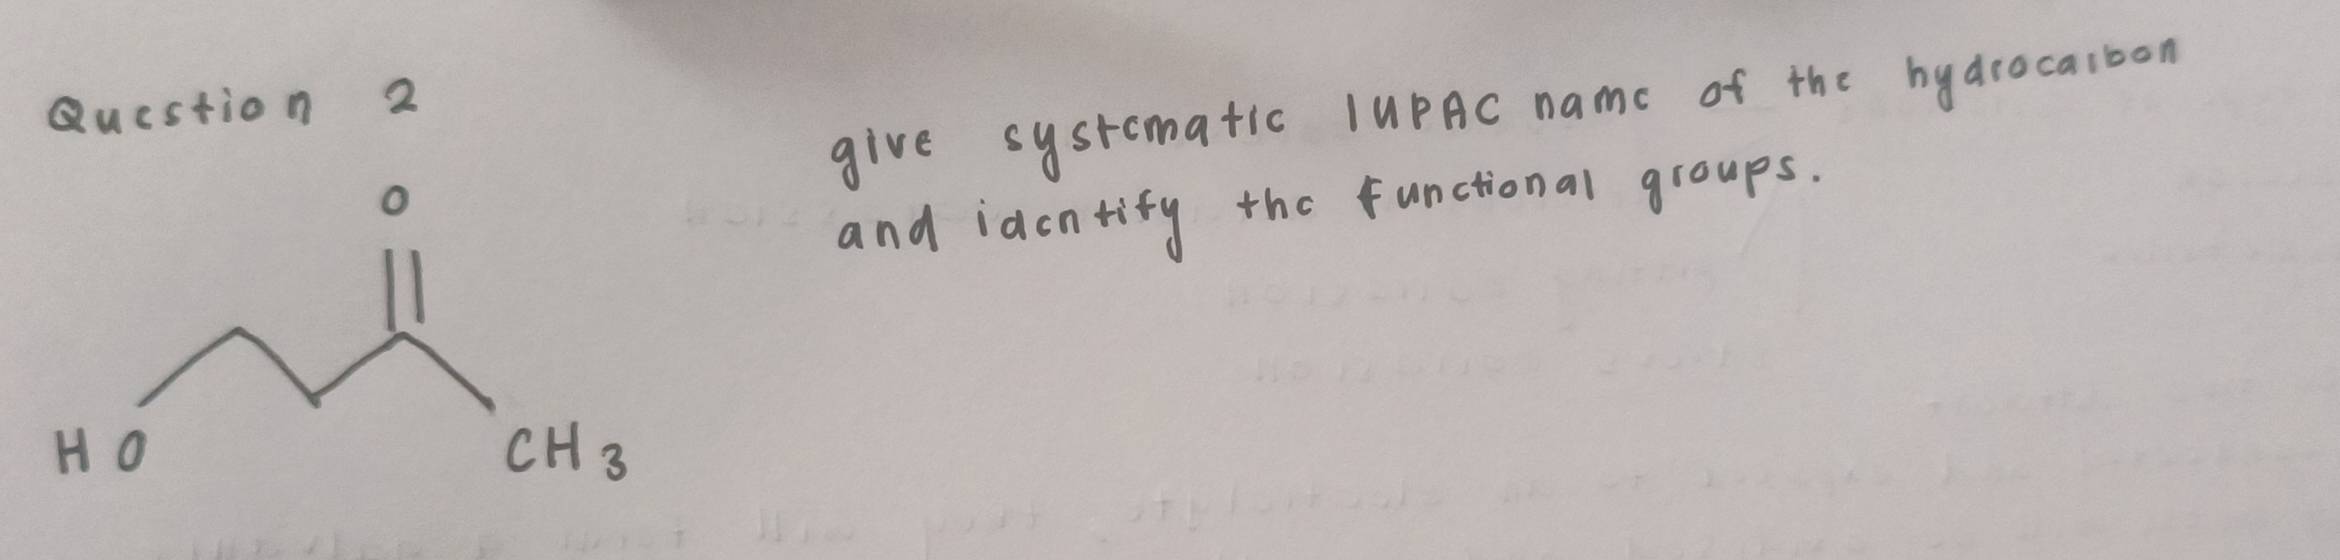 Question 2
give systematic IUPAC name of the hydrocarbon
and identify the functional groups.
O
HO
CH3